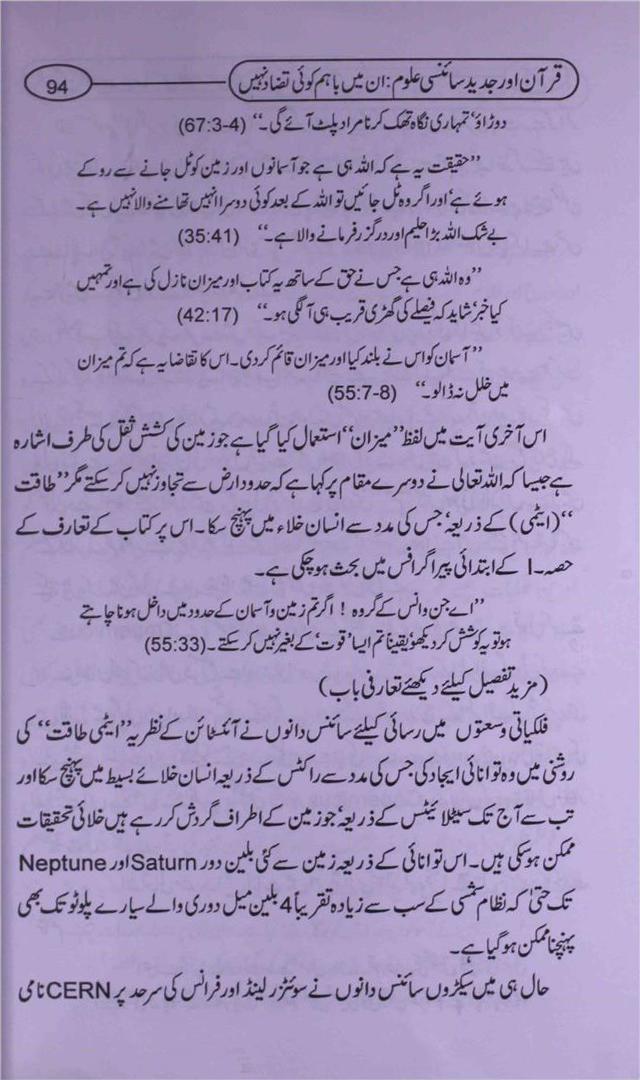 94
قرآن اور جدید سائنسی علوم: ان میں باہم کوئی تضاد نہیں
دوڑاؤ، تمہاری نگاہ تھک کر نامراد پلٹ آئے گی۔“ (67:3-4)
”حقیقت یہ ہے کہ اللہ ہی ہے جو آسمانوں اور زمین کو ٹل جانے سے روکے
ہوئے ہے، اور اگر وہ ٹل جائیں تو اللہ کے بعد کوئی دوسرا انہیں تھامنے والا نہیں ہے۔
بے شک اللہ بڑا حلیم اور درگزر فرمانے والا ہے۔“ (35:41)
”وہ اللہ ہی ہے جس نے حق کے ساتھ یہ کتاب اور میزان نازل کی ہے اور تمہیں
کیا خبر، شاید کہ فیصلے کی گھڑی قریب ہی آ لگی ہو۔“ (42:17)
”آسمان کو اس نے بلند کیا اور میزان قائم کر دی۔ اس کا تقاضا یہ ہے کہ تم میزان
میں خلل نہ ڈالو۔“ (55:7-8)
اس آخری آیت میں لفظ ”میزان“ استعمال کیا گیا ہے جو زمین کی کشش ثقل کی طرف اشارہ
ہے جیسا کہ اللہ تعالی نے دوسرے مقام پر کہا ہے کہ حدود ارض سے تجاوز نہیں کر سکتے مگر ”طاقت
“ (ایٹمی) کے ذریعہ، جس کی مدد سے انسان خلاء میں پہنچ سکا۔ اس پر کتاب کے تعارف کے
حصہ۔I کے ابتدائی پیراگرافس میں بحث ہو چکی ہے۔
”اے جن وانس کے گروہ! اگر تم زمین و آسمان کے حدود میں داخل ہونا چاہتے
ہو تو یہ کوشش کر دیکھو، یقیناً تم ایسا ’قوت‘ کے بغیر نہیں کر سکتے۔ (55:33)
(مزید تفصیل کیلئے دیکھئے تعارفی باب)
فلکیاتی وسعتوں میں رسائی کیلئے سائنس دانوں نے آئنسٹائن کے نظریہ ”ایٹمی طاقت“ کی
روشنی میں وہ توانائی ایجاد کی جس کی مدد سے راکٹس کے ذریعہ انسان خلائے بسیط میں پہنچ سکا اور
تب سے آج تک سیٹلائیٹس کے ذریعہ، جو زمین کے اطراف گردش کر رہے ہیں خلائی تحقیقات
ممکن ہو سکی ہیں۔ اس توانائی کے ذریعہ زمین سے کئی بلین دور Saturn اور Neptune
تک حتیٰ کہ نظام شمسی کے سب سے زیادہ تقریباً 4 بلین میل دوری والے سیارے پلوٹو تک بھی
پہنچنا ممکن ہو گیا ہے۔
حال ہی میں سیکڑوں سائنس دانوں نے سوئٹزر لینڈ اور فرانس کی سرحد پر CERN نامی